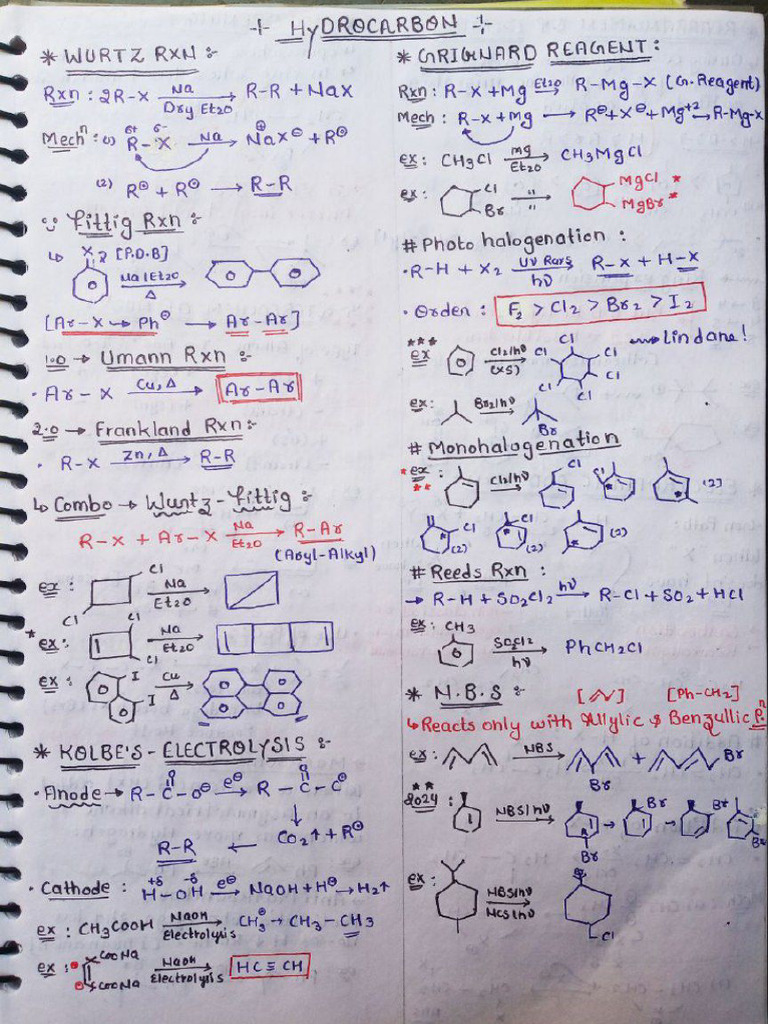 HyDROCARBON
* WURTZ RXN :-
Rxn : 2R-X Na Dry Et2O → R-R + NaX
Mechⁿ : (1) R-X Na → Na⊕X⊖ + R⊖
(2) R⊖ + R⊖ → R-R
Fittig Rxn :-
X [P.D.B]
Na|Et2O Δ
[Ar-X → Ph⊖ → Ar-Ar]
1.0 → Umann Rxn :-
• Ar-X Cu, Δ → Ar-Ar
2.0 → Frankland Rxn :-
• R-X Zn, Δ → R-R
↳ Combo → Wurtz-Fittig :-
R-X + Ar-X Na Et2O → R-Ar
(Aryl-Alkyl)
ex : Cl Cl Na Et2O →
* ex : Cl Cl Na Et2O →
ex : I I Cu Δ →
* KOLBE'S - ELECTROLYSIS :-
• Anode → R-C-O⊖ e⊖ → R-C-C⊖
O O
R-R ← CO2↑ + R⊖
• Cathode : H-OH e⊖ → NaOH + H⊖ → H2↑
+δ -δ
ex : CH3COOH NaOH Electrolysis → CH3⊖ → CH3-CH3
ex : COONa COONa NaOH Electrolysis → HC≡CH
* GRIGNARD REAGENT :
Rxn : R-X + Mg Et2O → R-Mg-X (G.Reagent)
Mech : R-X + Mg → R⊖ + X⊖ + Mg+2 → R-Mg-X
ex : CH3Cl mg Et2O → CH3MgCl
ex : Cl Br " " → MgCl * MgBr *
# Photo halogenation :
• R-H + X2 UV Rays hν → R-X + H-X
• Orden : F2 > Cl2 > Br2 > I2
*** ex Cl2|hν (XS) → Cl Cl Cl Cl Cl Cl → Lindane!
ex : Br2|hν → Br
# Monohalogenation
* ex : ** Cl2|hν → Cl (2)
Cl (2) Cl (2) (2)
# Reeds Rxn :
→ R-H + SO2Cl2 hν → R-Cl + SO2 + HCl
ex : CH3 SO2Cl2 hν → PhCH2Cl
* N.B.S :- [ ] [Ph-CH2]
↳ Reacts only with Allylic & Benzullic Pⁿ
ex : NBS → Br + Br
** 2024 : NBS|hν → Br → Br → Br Br
ex : NBS|hν NCS|hν → Cl